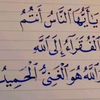 يَا أَيُّهَا النَّاسُ أَنتُمُ
الْفُقَرَاءُ إِلَى اللَّهِ
وَاللَّهُ هُوَ الْغَنِيُّ الْحَمِيدُ